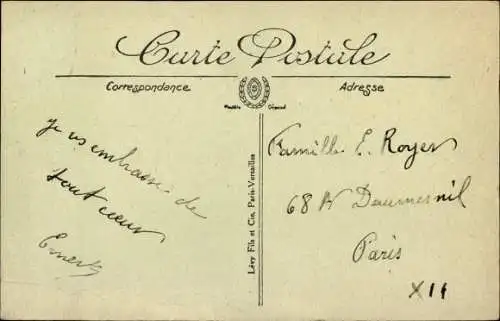 Carte Postale
Correspondance
Adresse
Modèle Déposé
je vs embrasse de
tout cœur
Ernest
Lévy Fils et Cie, Paris-Versailles
Famille E. Royer
68 Daumesnil
Paris